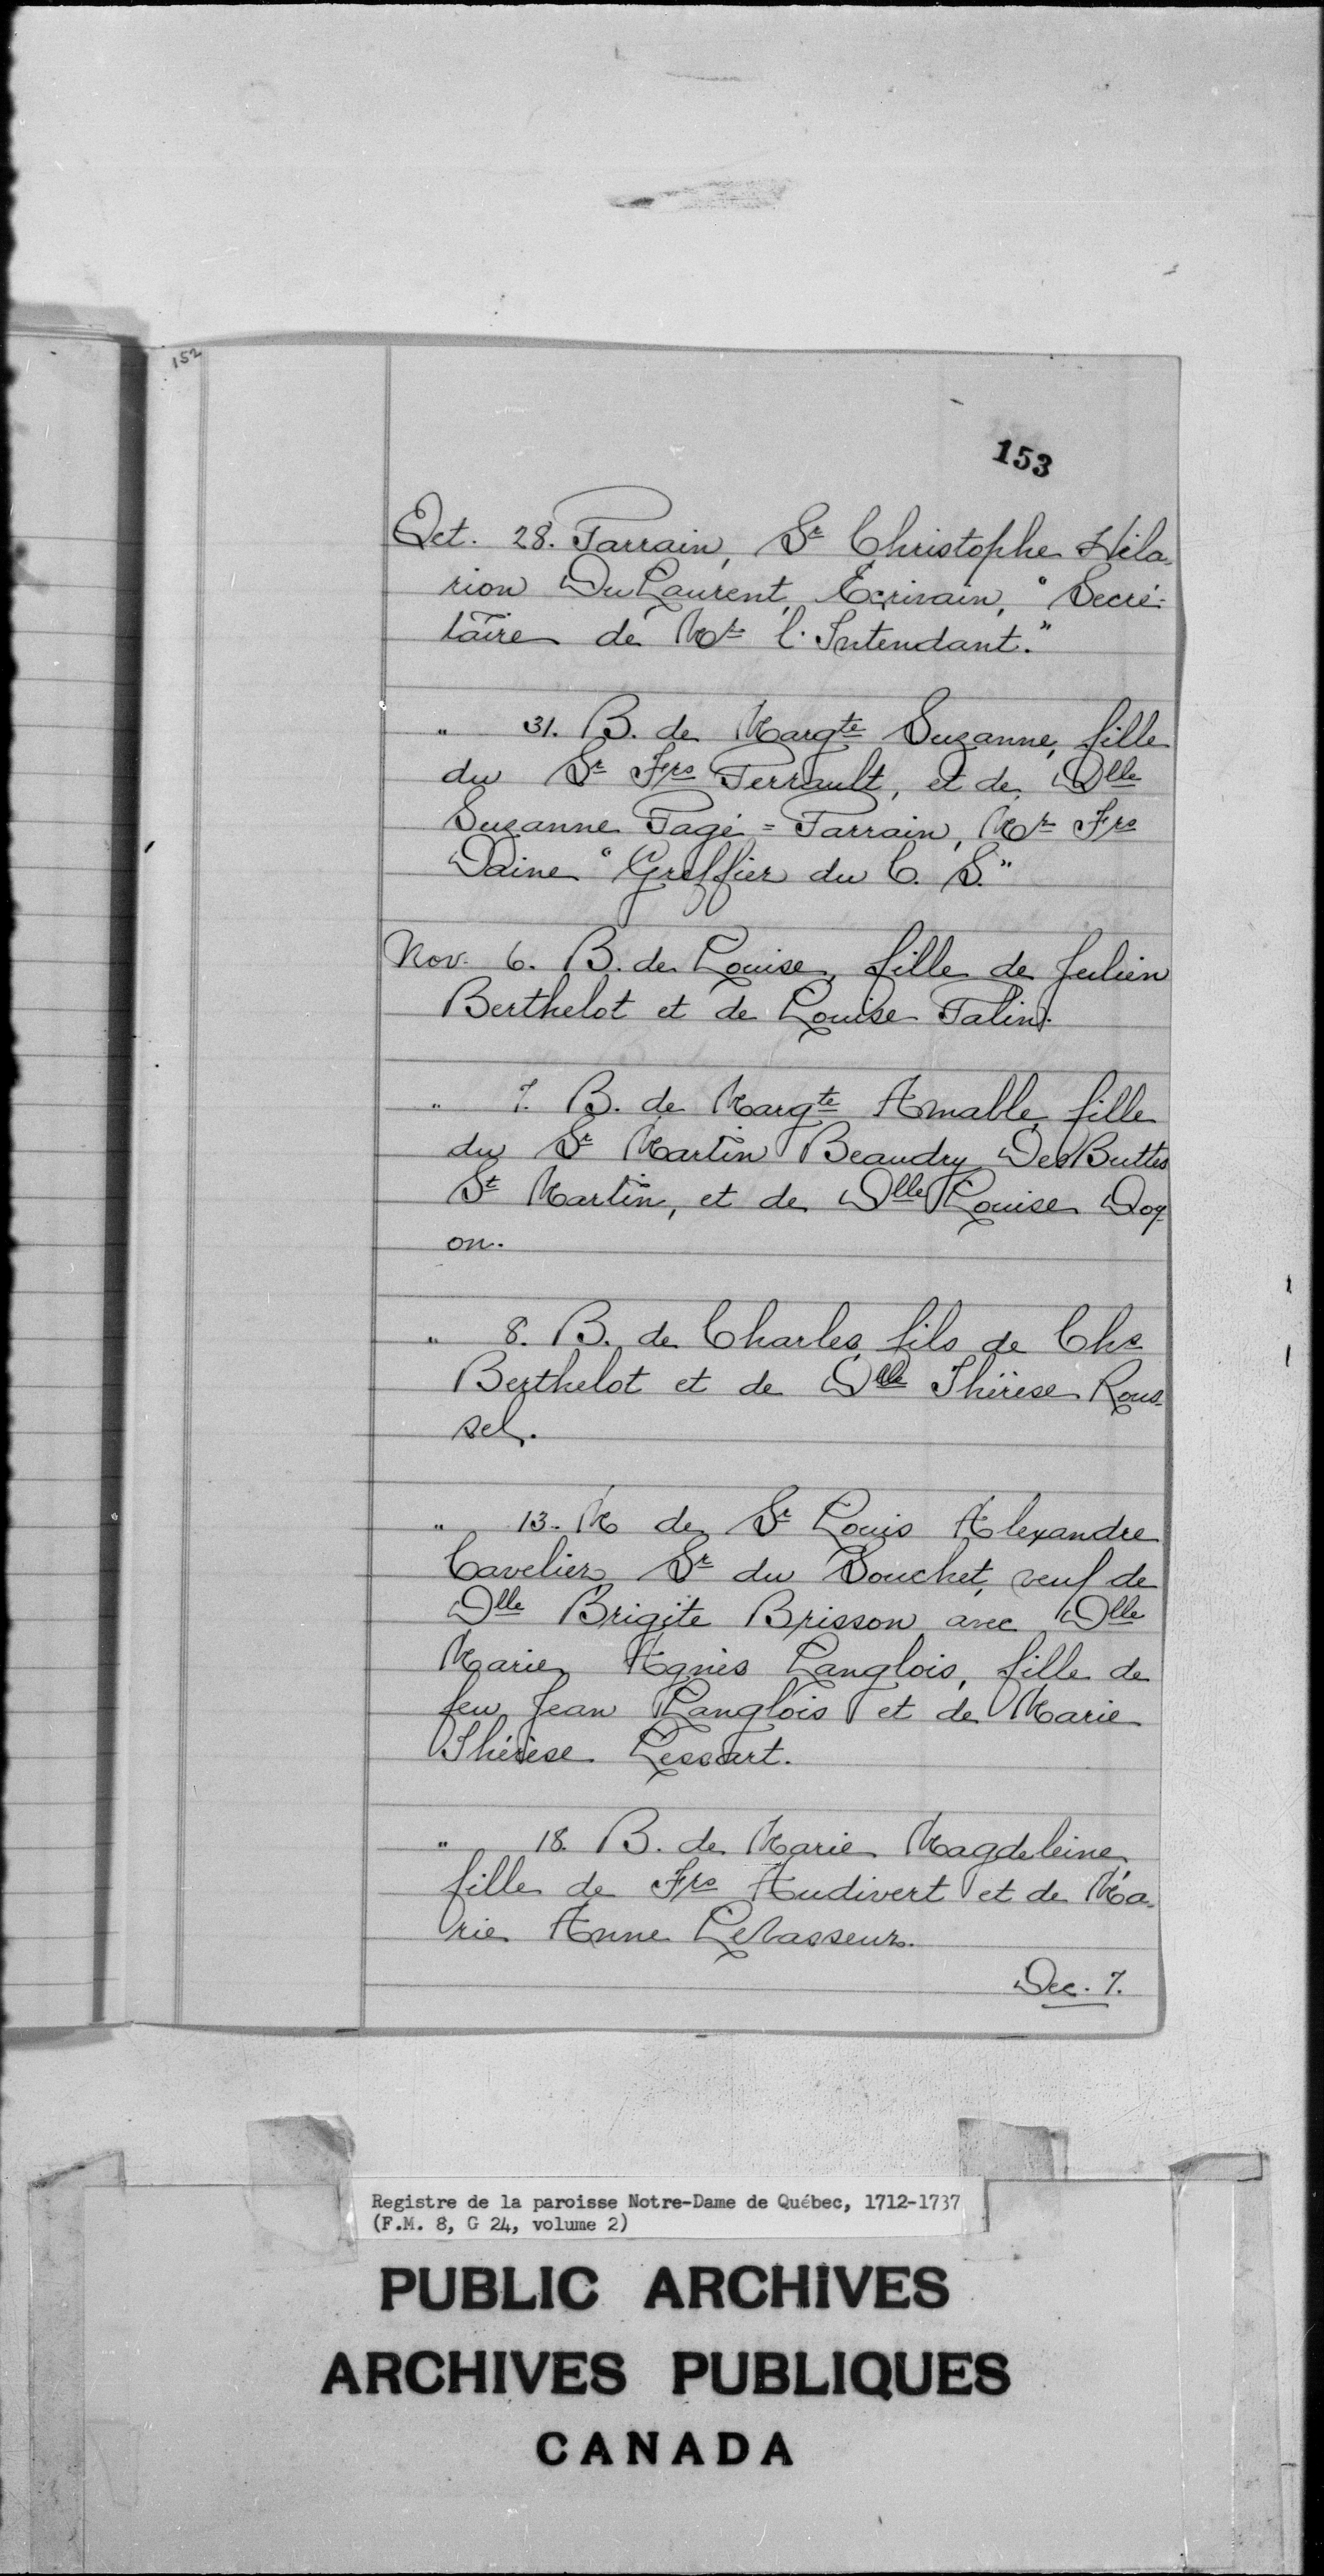 152
153
Oct. 28. Parrain, Sr Christophe Hila-
rion Du Laurent, Ecrivain, "Secré-
taire de Mr l'Intendant."
" 31. B. de Margte Suzanne, fille
du Sr Frs Perrault, et de Dlle
Suzanne Pagé = Parrain, Mr Frs
Daine "Greffier du C. S."
Nov. 6. B. de Louise, fille de Julien
Berthelot et de Louise Palin.
" 7. B. de Margte Amable, fille
du Sr Martin Beaudry Des Buttes
St Martin, et de Dlle Louise Doy-
on.
" 8. B. de Charles, fils de Chs
Berthelot et de Dlle Thérèse Rous-
sel.
" 13. M de Sr Louis Alexandre
Cavelier, Sr du Souchet, veuf de
Dlle Brigite Brisson avec Dlle
Marie Agnès Langlois, fille de
feu Jean Langlois et de Marie
Thérèse Lessart.
" 18. B. de Marie Magdeleine,
fille de Frs Audivert et de Ma-
rie Anne LeVasseur.
Dec. 7.
Registre de la paroisse Notre-Dame de Québec, 1712-1737
(F.M. 8, G 24, volume 2)
PUBLIC ARCHIVES
ARCHIVES PUBLIQUES
CANADA